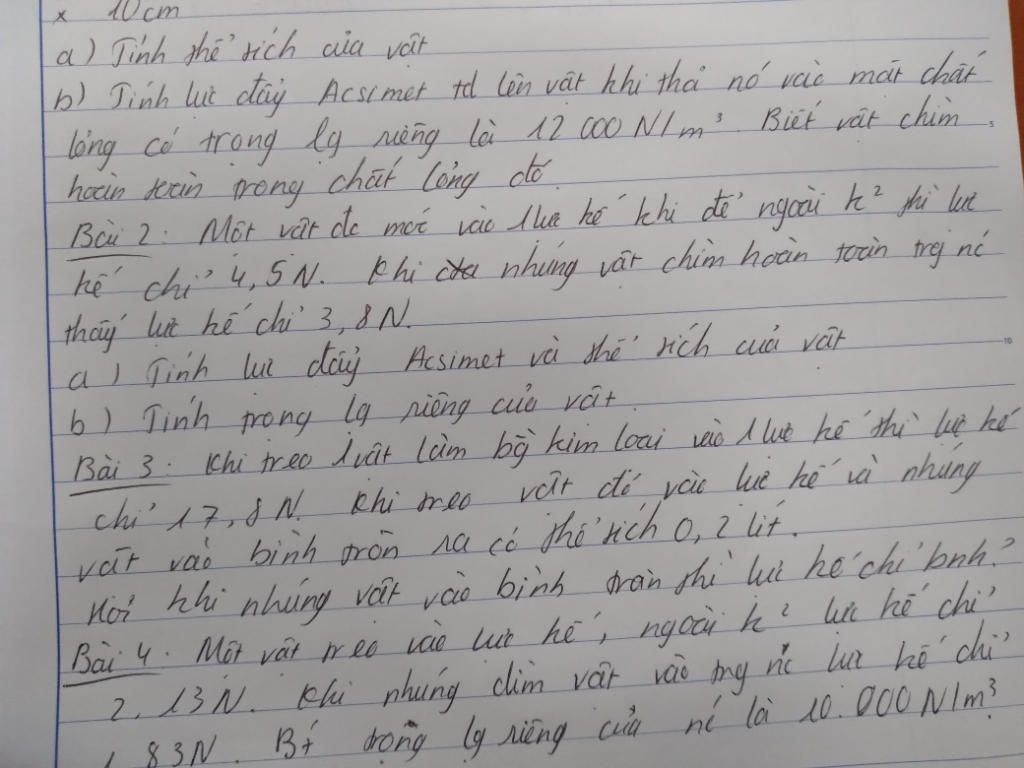 x 10cm
a) Tính thể tích của vật
b) Tính lực đẩy Acsimet td lên vật khi thả nó vào một chất
lỏng có trọng lg riêng là 12 000 N/m³. Biết vật chìm
hoàn toàn trong chất lỏng đó
Bài 2: Một vật đc móc vào 1 lực kế khi để ngoài k² thì lực
kế chỉ 4,5N. Khi nhúng vật chìm hoàn toàn trg nc
thấy lực kế chỉ 3,8N.
a) Tính lực đẩy Acsimet và thể tích của vật
b) Tính trọng lg riêng của vật
Bài 3: Khi treo 1 vật làm bg kim loại vào 1 lực kế thì lực kế
chỉ 17,8N. Khi treo vật đó vào lực kế và nhúng
vật vào bình tràn ra có thể tích 0,2 lít.
Hỏi khi nhúng vật vào bình tràn thì lực kế chỉ bnh?
Bài 4. Một vật treo vào lực kế, ngoài k² lực kế chỉ
2,13N. Khi nhúng chìm vật vào trg nc lực kế chỉ
1,83N. Bt trọng lg riêng của nc là 10.000N/m³